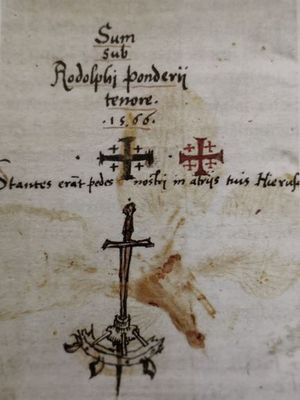 Sum
sub
Rodolphi Ponderii
tenore.
.1566.
Stantes erãt pedes nostri in atrijs tuis Hierusa